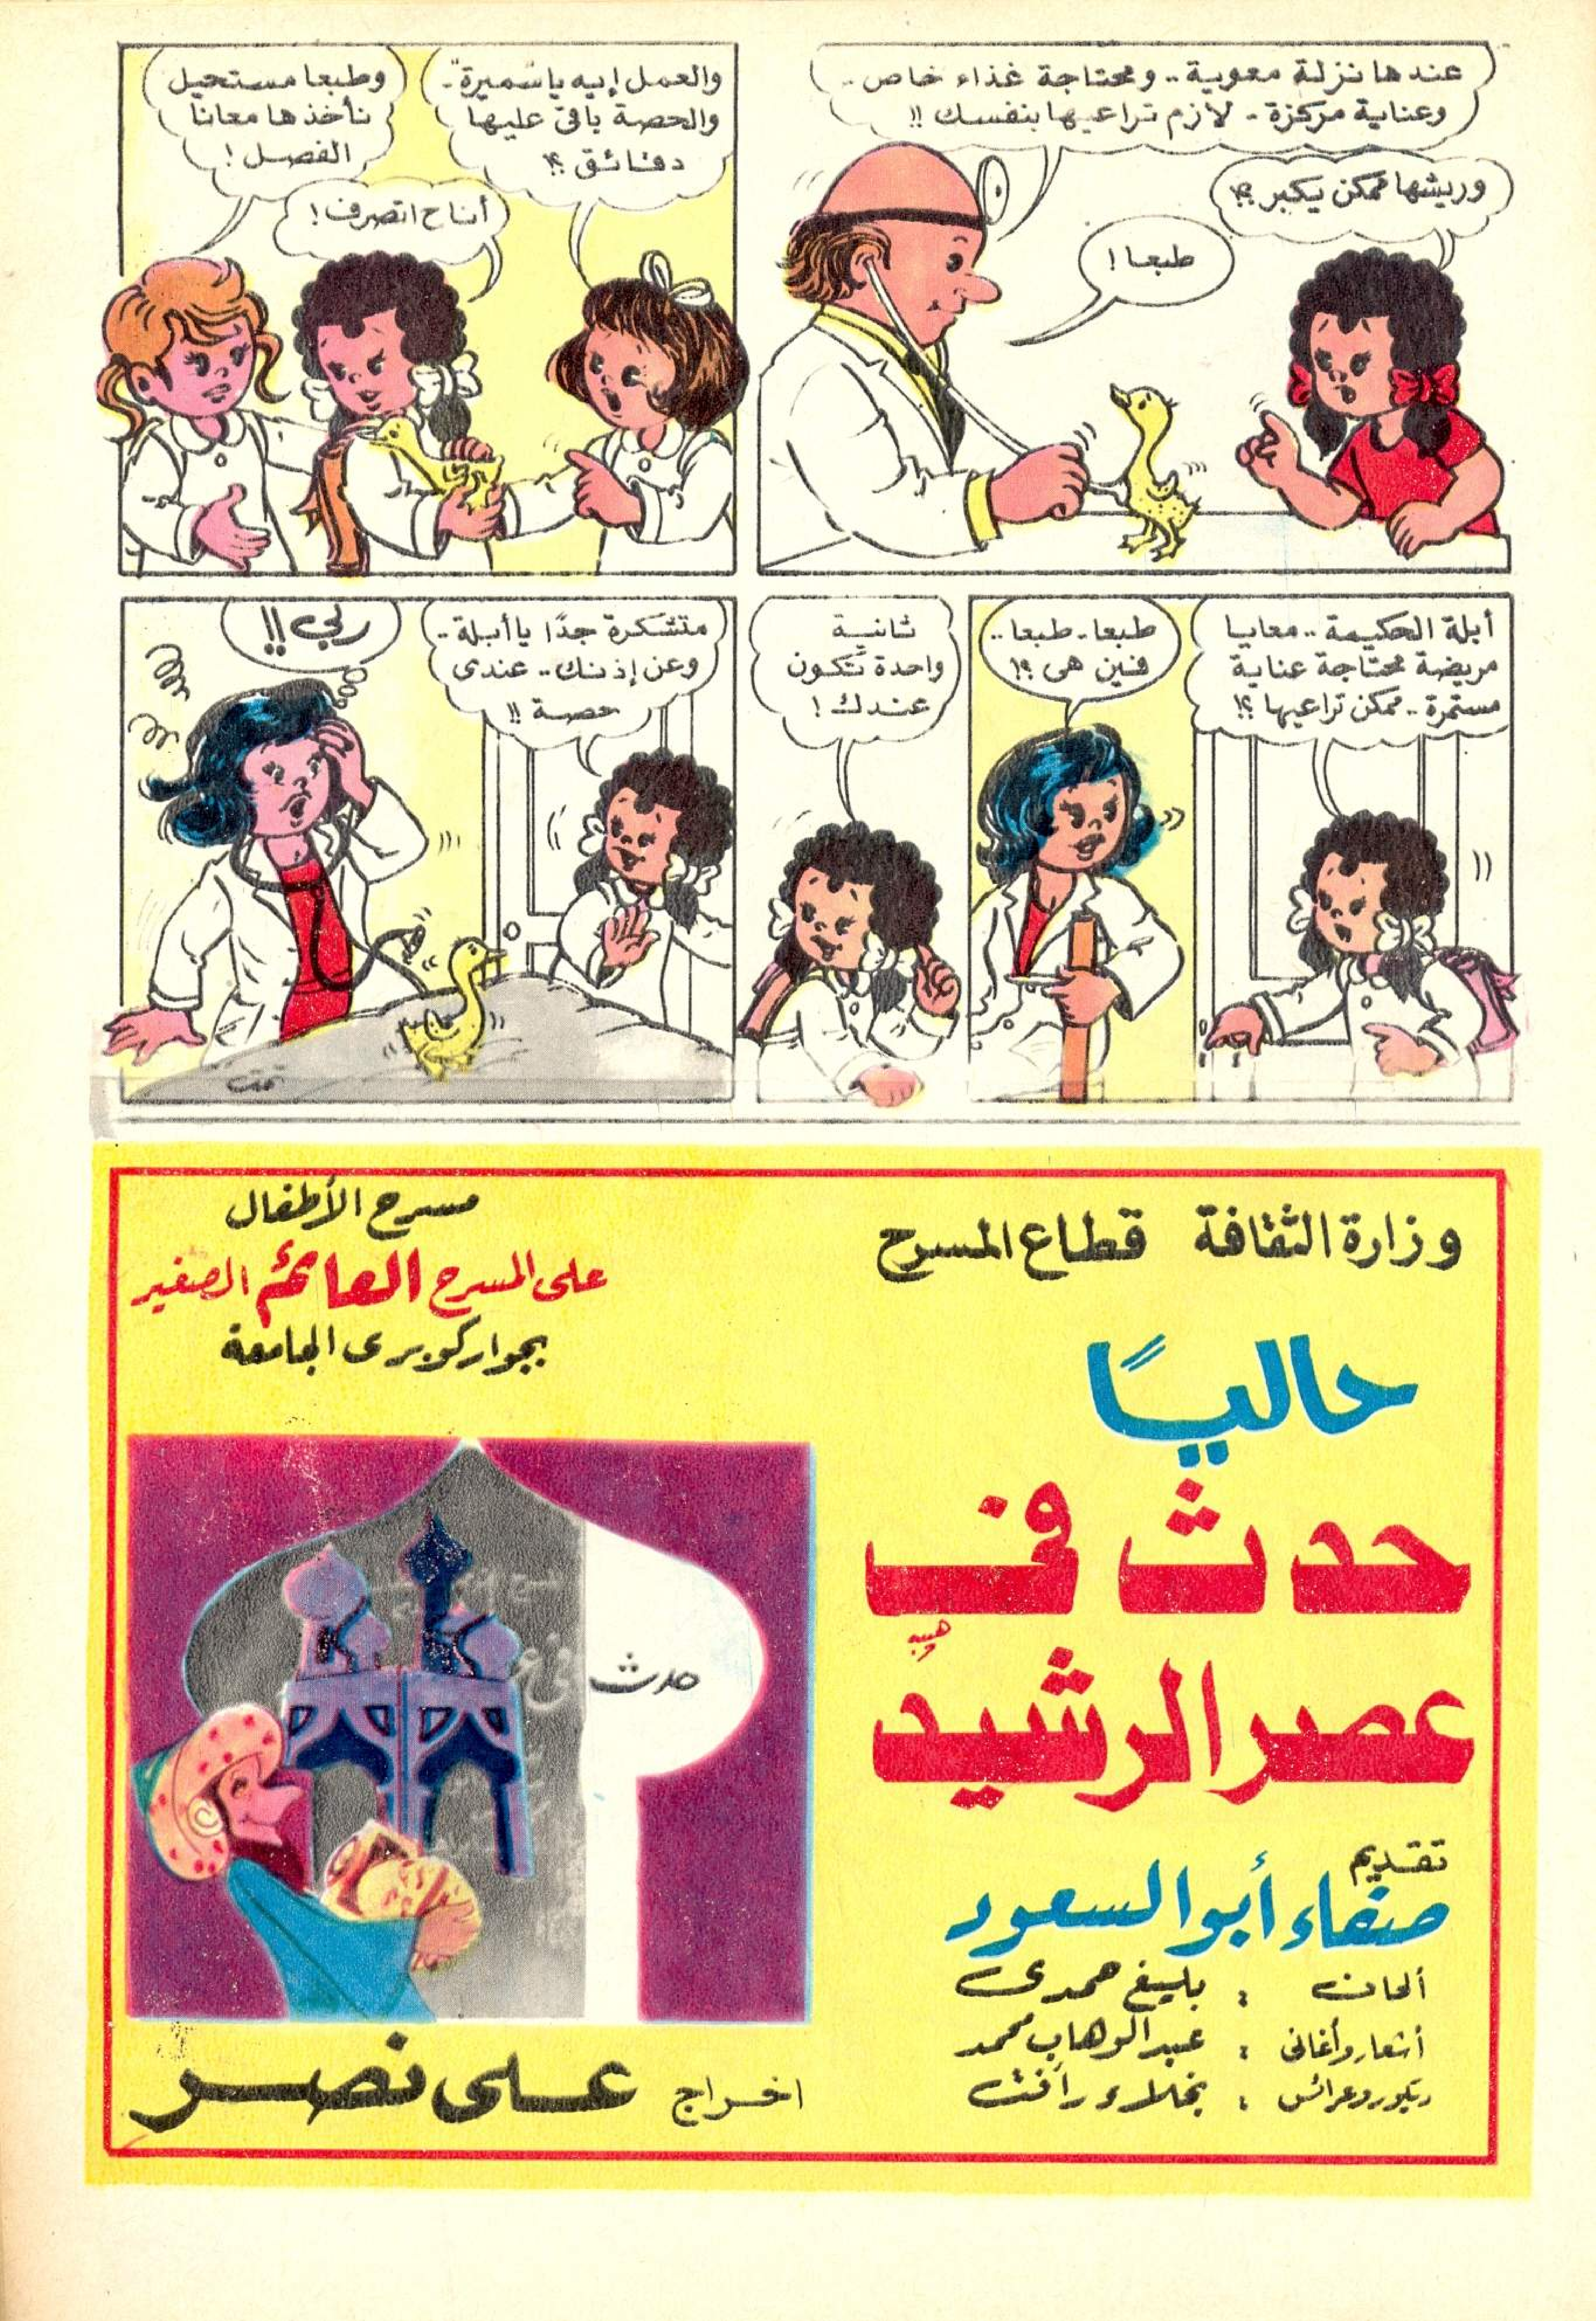 عندها نزلة معوية.. ومحتاجة غذاء خاص..
وعناية مركزة - لازم تراعيها بنفسك !!
وريشها ممكن يكبر ؟!
طبعا !
والعمل إيه يا سميرة..
والحصة باقى عليها
دقائق ؟!
أنا ح اتصرف !
وطبعا مستحيل
نأخذها معانا
الفصل !
أبلة الحكيمة .. معايا
مريضة محتاجة عناية
مستمرة .. ممكن تراعيها ؟!
طبعا - طبعا ..
فين هى ؟!
ثانية
واحدة تكون
عندك !
متشكرة جدًا يا أبلة ..
وعن إذنك .. عندى
حصة !!
ربي !!
تمت
وزارة الثقافة قطاع المسرح
مسرح الأطفال
على المسرح العائم الصغير
بجوار كوبرى الجامعة
حاليًا
حدث فى
عصر الرشيد
هبيه
تقديم
صفاء أبو السعود
ألحان : بليغ حمدى
أشعار وأغانى : عبد الوهاب محمد
ديكور وعرائس : نجلاء رأفت
حدث
فى
اخراج على نصر